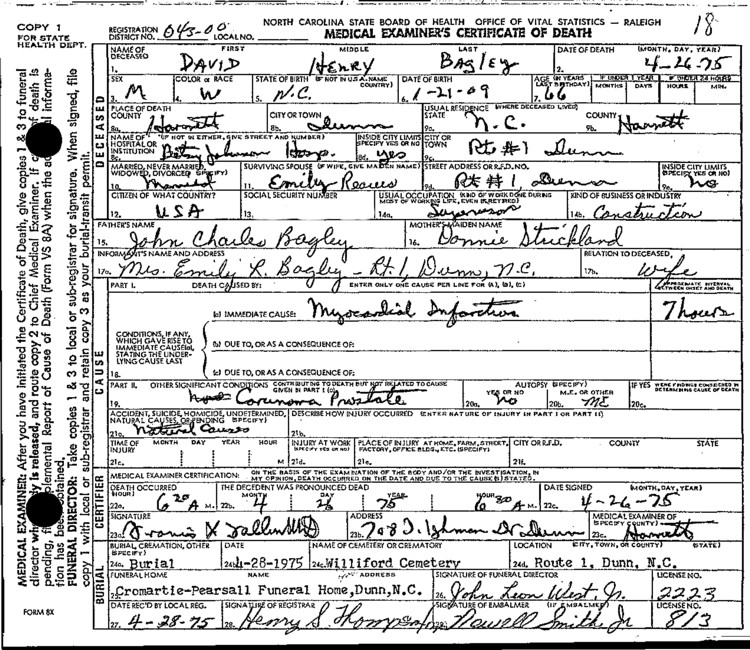 COPY 1
FOR STATE
HEALTH DEPT.
REGISTRATION
DISTRICT NO. 043-00 LOCAL NO.
NORTH CAROLINA STATE BOARD OF HEALTH OFFICE OF VITAL STATISTICS – RALEIGH
MEDICAL EXAMINER'S CERTIFICATE OF DEATH
18
NAME OF DECEASED FIRST MIDDLE LAST DATE OF DEATH (MONTH, DAY, YEAR)
1. DAVID HENRY BAGLEY 2. 4-26-75
SEX COLOR or RACE STATE OF BIRTH (IF NOT IN U.S.A. NAME COUNTRY) DATE OF BIRTH AGE (IN YEARS LAST BIRTHDAY) IF UNDER 1 YEAR IF UNDER 24 HOURS
MONTHS DAYS HOURS MIN.
3. M 4. W 5. N.C. 6. 1-21-09 7. 66
PLACE OF DEATH
COUNTY CITY OR TOWN USUAL RESIDENCE (WHERE DECEASED LIVED)
STATE COUNTY
8a. Harnett 8b. Dunn 9a. N.C. 9b. Harnett
NAME OF HOSPITAL OR INSTITUTION (IF NOT IN EITHER, GIVE STREET AND NUMBER) INSIDE CITY LIMITS (SPECIFY YES OR NO) CITY OR TOWN
8c. Betsy Johnson Hosp. Yes Rt #1 Dunn
MARRIED, NEVER MARRIED, WIDOWED, DIVORCED (SPECIFY) SURVIVING SPOUSE (IF WIFE, GIVE MAIDEN NAME) STREET ADDRESS OR R.F.D. NO. INSIDE CITY LIMITS (SPECIFY YES OR NO)
10. Married 11. Emily Reaves 9d. Rt #1 Dunn 9e. No
CITIZEN OF WHAT COUNTRY? SOCIAL SECURITY NUMBER USUAL OCCUPATION (KIND OF WORK DONE DURING MOST OF WORKING LIFE, EVEN IF RETIRED) KIND OF BUSINESS OR INDUSTRY
12. USA 13. Supervisor 14b. Construction
FATHER'S NAME MOTHER'S MAIDEN NAME
15. John Charles Bagley 16. Donnie Strickland
INFORMANT'S NAME AND ADDRESS RELATION TO DECEASED
17a. Mrs. Emily R. Bagley - Rt. 1, Dunn, N.C. 17b. wife
PART I. DEATH CAUSED BY: ENTER ONLY ONE CAUSE PER LINE FOR (A), (B), (C) APPROXIMATE INTERVAL BETWEEN ONSET AND DEATH
(a) IMMEDIATE CAUSE: Myocardial Infarction 7 hours
CONDITIONS, IF ANY, WHICH GAVE RISE TO IMMEDIATE CAUSE (a), STATING THE UNDERLYING CAUSE LAST
(b) DUE TO, OR AS A CONSEQUENCE OF:
18. (c) DUE TO, OR AS A CONSEQUENCE OF:
PART II. OTHER SIGNIFICANT CONDITIONS CONTRIBUTING TO DEATH BUT NOT RELATED TO CAUSE GIVEN IN PART I (a) AUTOPSY (SPECIFY) YES OR NO M.E. OR OTHER IF YES WERE FINDINGS CONSIDERED IN DETERMINING CAUSE OF DEATH
19. Carcinoma Prostate 20a. No 20b. ME 20c.
ACCIDENT, SUICIDE, HOMICIDE, UNDETERMINED, NATURAL CAUSES, OR PENDING (SPECIFY) DESCRIBE HOW INJURY OCCURRED (ENTER NATURE OF INJURY IN PART I OR PART II)
21a. Natural Causes 21b.
TIME OF INJURY MONTH DAY YEAR HOUR INJURY AT WORK (SPECIFY YES OR NO) PLACE OF INJURY AT HOME, FARM, STREET, FACTORY, OFFICE BLDG., ETC. (SPECIFY) CITY OR R.F.D. COUNTY STATE
21c. M 21d. 21e. 21f.
MEDICAL EXAMINER CERTIFICATION: ON THE BASIS OF THE EXAMINATION OF THE BODY AND/OR THE INVESTIGATION, IN MY OPINION, DEATH OCCURRED ON THE DATE AND DUE TO THE CAUSE(S) STATED.
DEATH OCCURRED (HOUR) THE DECEDENT WAS PRONOUNCED DEAD MONTH DAY YEAR HOUR DATE SIGNED (MONTH, DAY, YEAR)
22a. 6 20 A M. 22b. 4 26 75 A M. 22c. 4-26-75
SIGNATURE ADDRESS MEDICAL EXAMINER OF (SPECIFY COUNTY)
23a. 23b. 23c. Harnett
BURIAL, CREMATION, OTHER (SPECIFY) DATE NAME OF CEMETERY OR CREMATORY LOCATION (CITY, TOWN, OR COUNTY) (STATE)
24a. Burial 24b. 4-28-1975 24c. Williford Cemetery 24d. Route 1, Dunn, N.C.
FUNERAL HOME NAME ADDRESS SIGNATURE OF FUNERAL DIRECTOR LICENSE NO.
25. Cromartie-Pearsall Funeral Home, Dunn, N.C. 26. John Leon West, Jr. 2223
DATE REC'D BY LOCAL REG. SIGNATURE OF REGISTRAR SIGNATURE OF EMBALMER (IF EMBALMED) LICENSE NO.
27. 4-28-75 28. Henry S. Thompson Newell Smith Jr 813
DECEASED
CAUSE
CERTIFIER
BURIAL
MEDICAL EXAMINER: After you have initiated the Certificate of Death, give copies 1 & 3 to funeral
is released, and route copy 2 to Chief Medical Examiner. If death is
pending, Report of Cause of Death (Form VS 8A) when the
tion has been obtained.
FUNERAL DIRECTOR: Take copies 1 & 3 to local or sub-registrar for signature. When signed, file
copy 1 with local or sub-registrar and retain copy 3 as your burial-transit permit.
FORM 8X